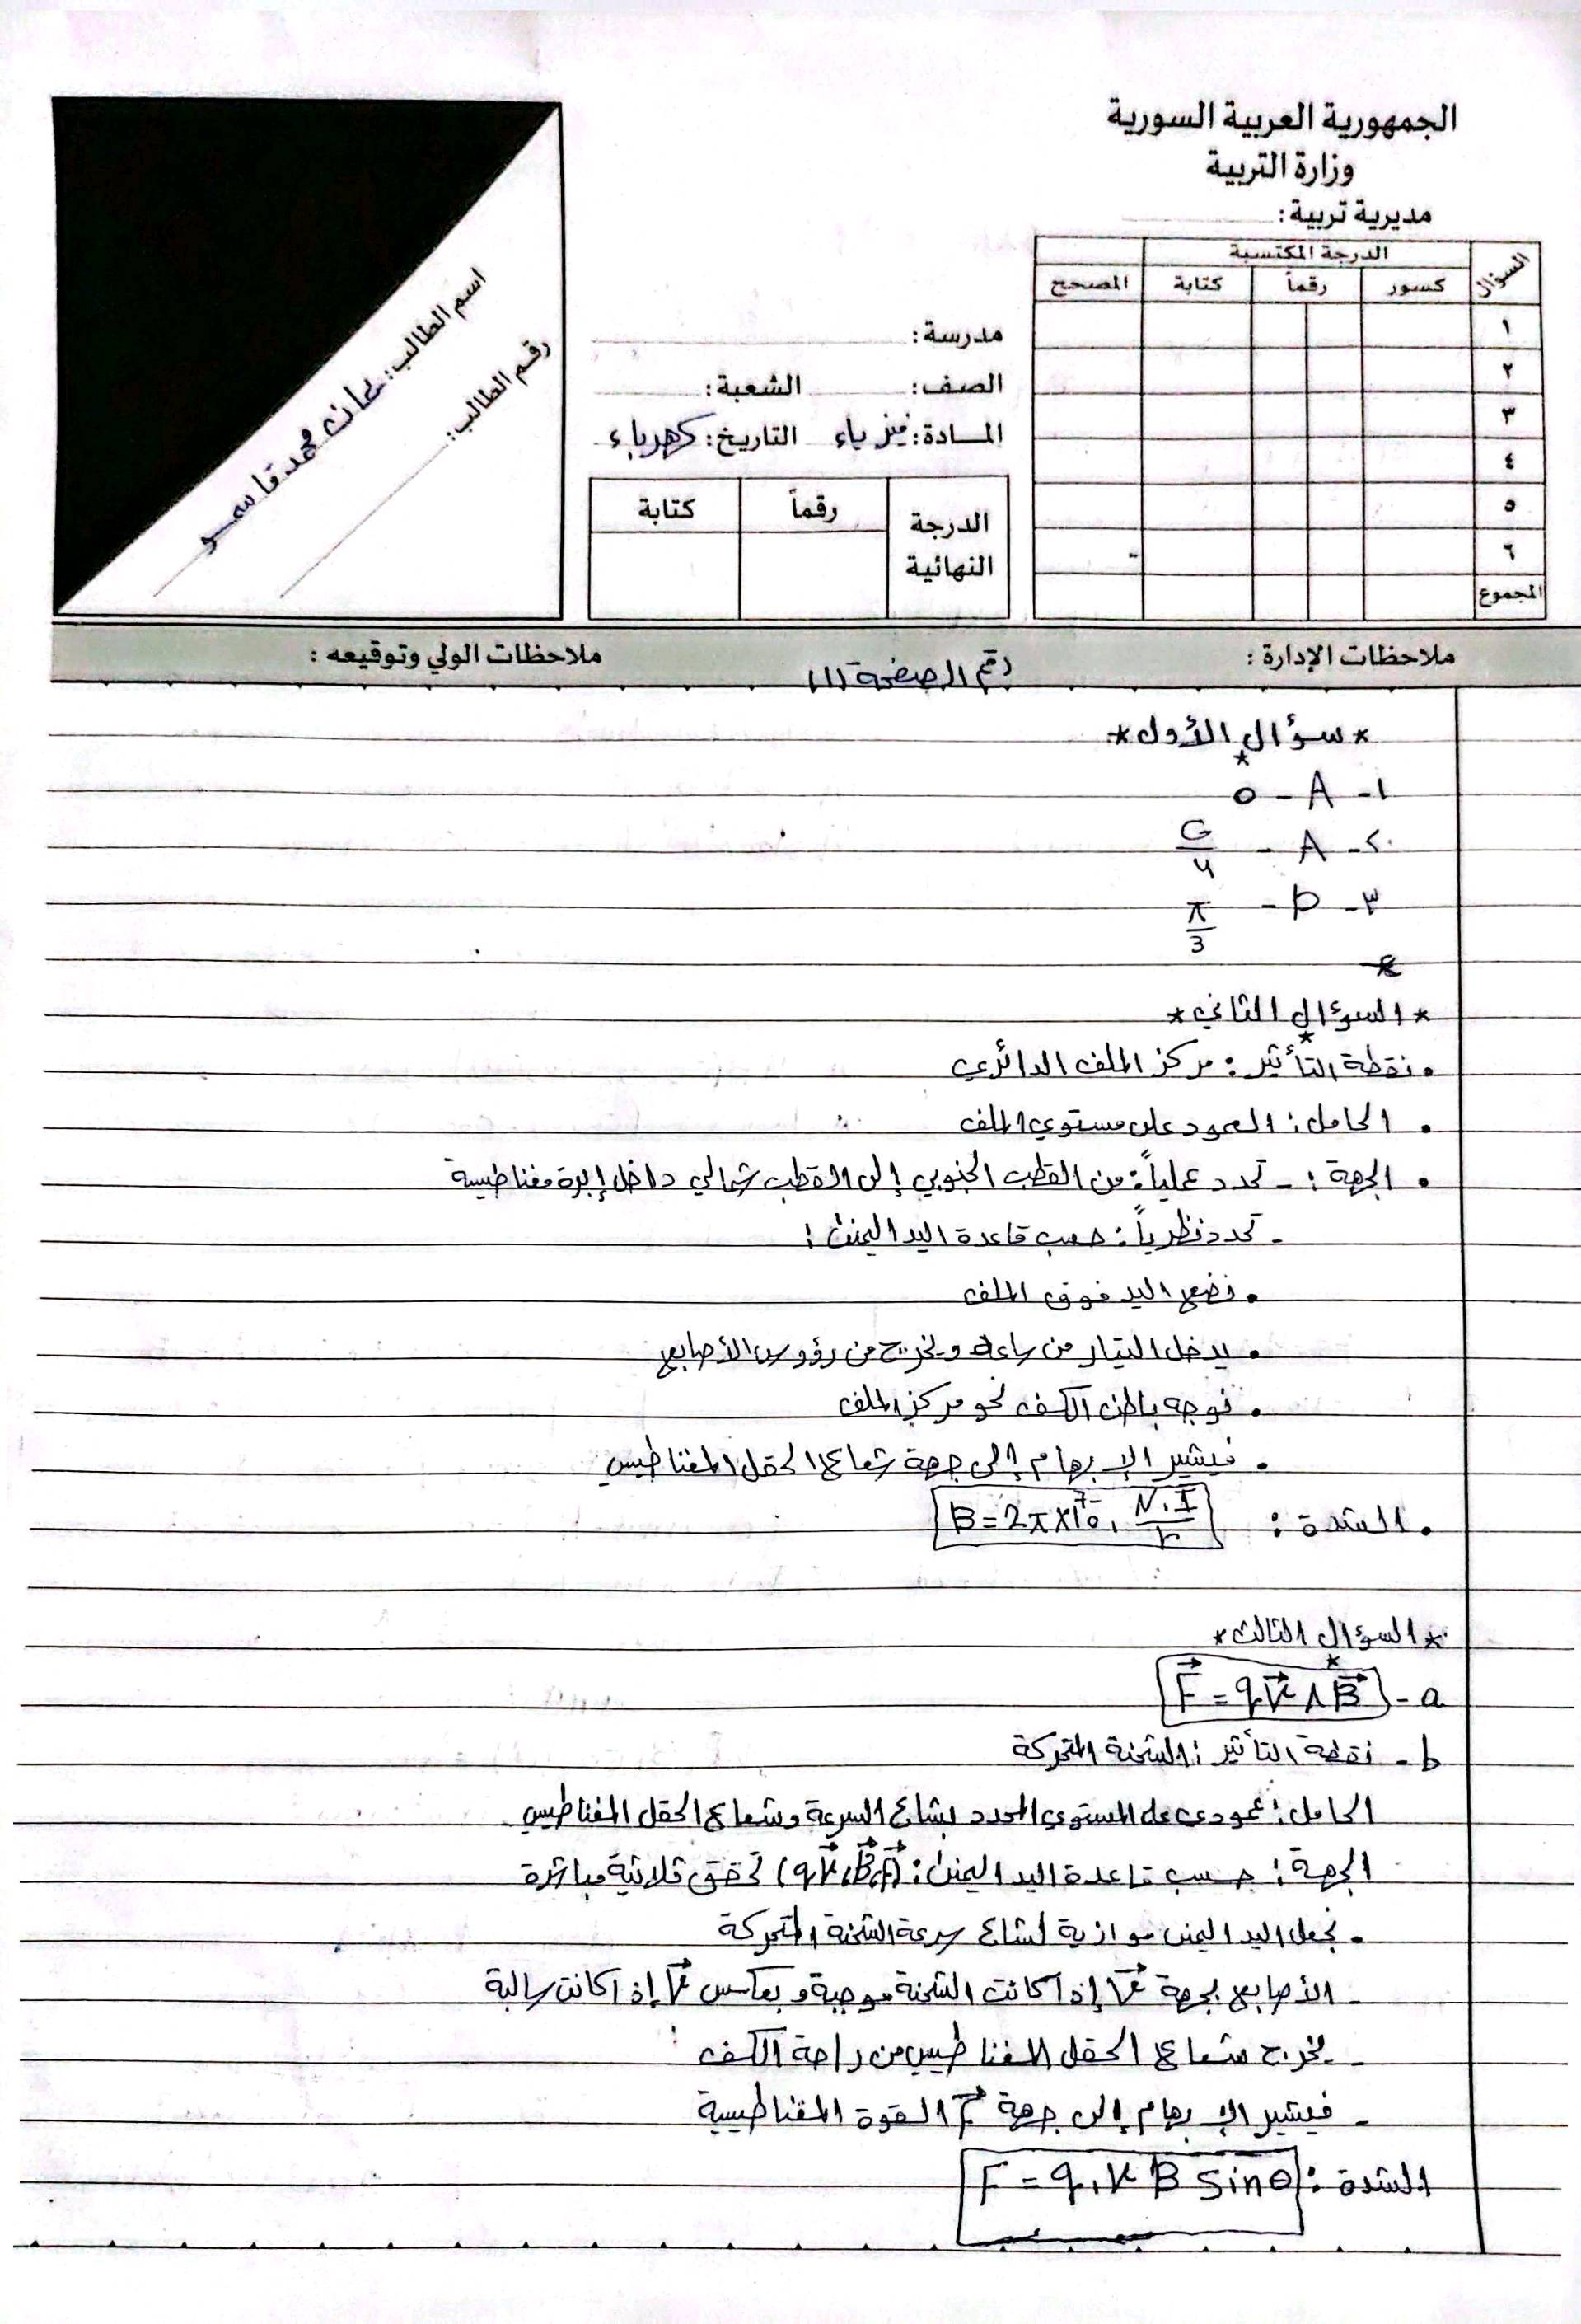 الجمهورية العربية السورية
وزارة التربية
مديرية تربية:
السؤال
الدرجة المكتسبة
كسور
رقماً
كتابة
المصحح
١
٢
٣
٤
٥
٦
المجموع
مدرسة:
الصف: الشعبة:
المادة: فيزياء التاريخ: كهرباء
الدرجة النهائية
رقماً
كتابة
اسم الطالب: محمد قاسمو
رقم الطالب:
ملاحظات الإدارة:
رقم الصفحة (١)
ملاحظات الولي وتوقيعه:
* سؤال الأول *
١- A - 0
٢- A - G/4
٣- D - π/3
* السؤال الثاني *
• نقطة التأثير: مركز الملف الدائري
• الحامل: العمود على مستوي الملف
• الجهة: - تحدد عملياً: من القطب الجنوبي إلى القطب شمالي داخل إبرة مغناطيسية
- تحدد نظرياً: حسب قاعدة اليد اليمنى:
• نضع اليد فوق الملف
• يدخل التيار من ساعد ويخرج من رؤوس الأصابع
• نوجه باطن الكف نحو مركز الملف
• فيشير الإبهام إلى جهة شعاع الحقل المغناطيسي
• الشدة: B = 2π×10⁻⁷ . N.I/r
* السؤال الثالث *
a - F⃗ = q v⃗ ∧ B⃗
b - نقطة التأثير: الشحنة المتحركة
الحامل: عمودي على المستوي المحدد بشاع السرعة وشعاع الحقل المغناطيسي
الجهة: حسب قاعدة اليد اليمنى: (qv⃗, B⃗, F⃗) تحقق ثلاثية مباشرة
• نجعل اليد اليمنى موازية لشاع سرعة الشحنة المتحركة
- الأصابع بجهة v⃗ إذا كانت الشحنة موجبة وبعكس v⃗ إذا كانت سالبة
- يخرج شعاع الحقل المغناطيسي من راحة الكف
- فيشير الإبهام إلى جهة F⃗ القوة المغناطيسية
الشدة: F = q.v B sinθ